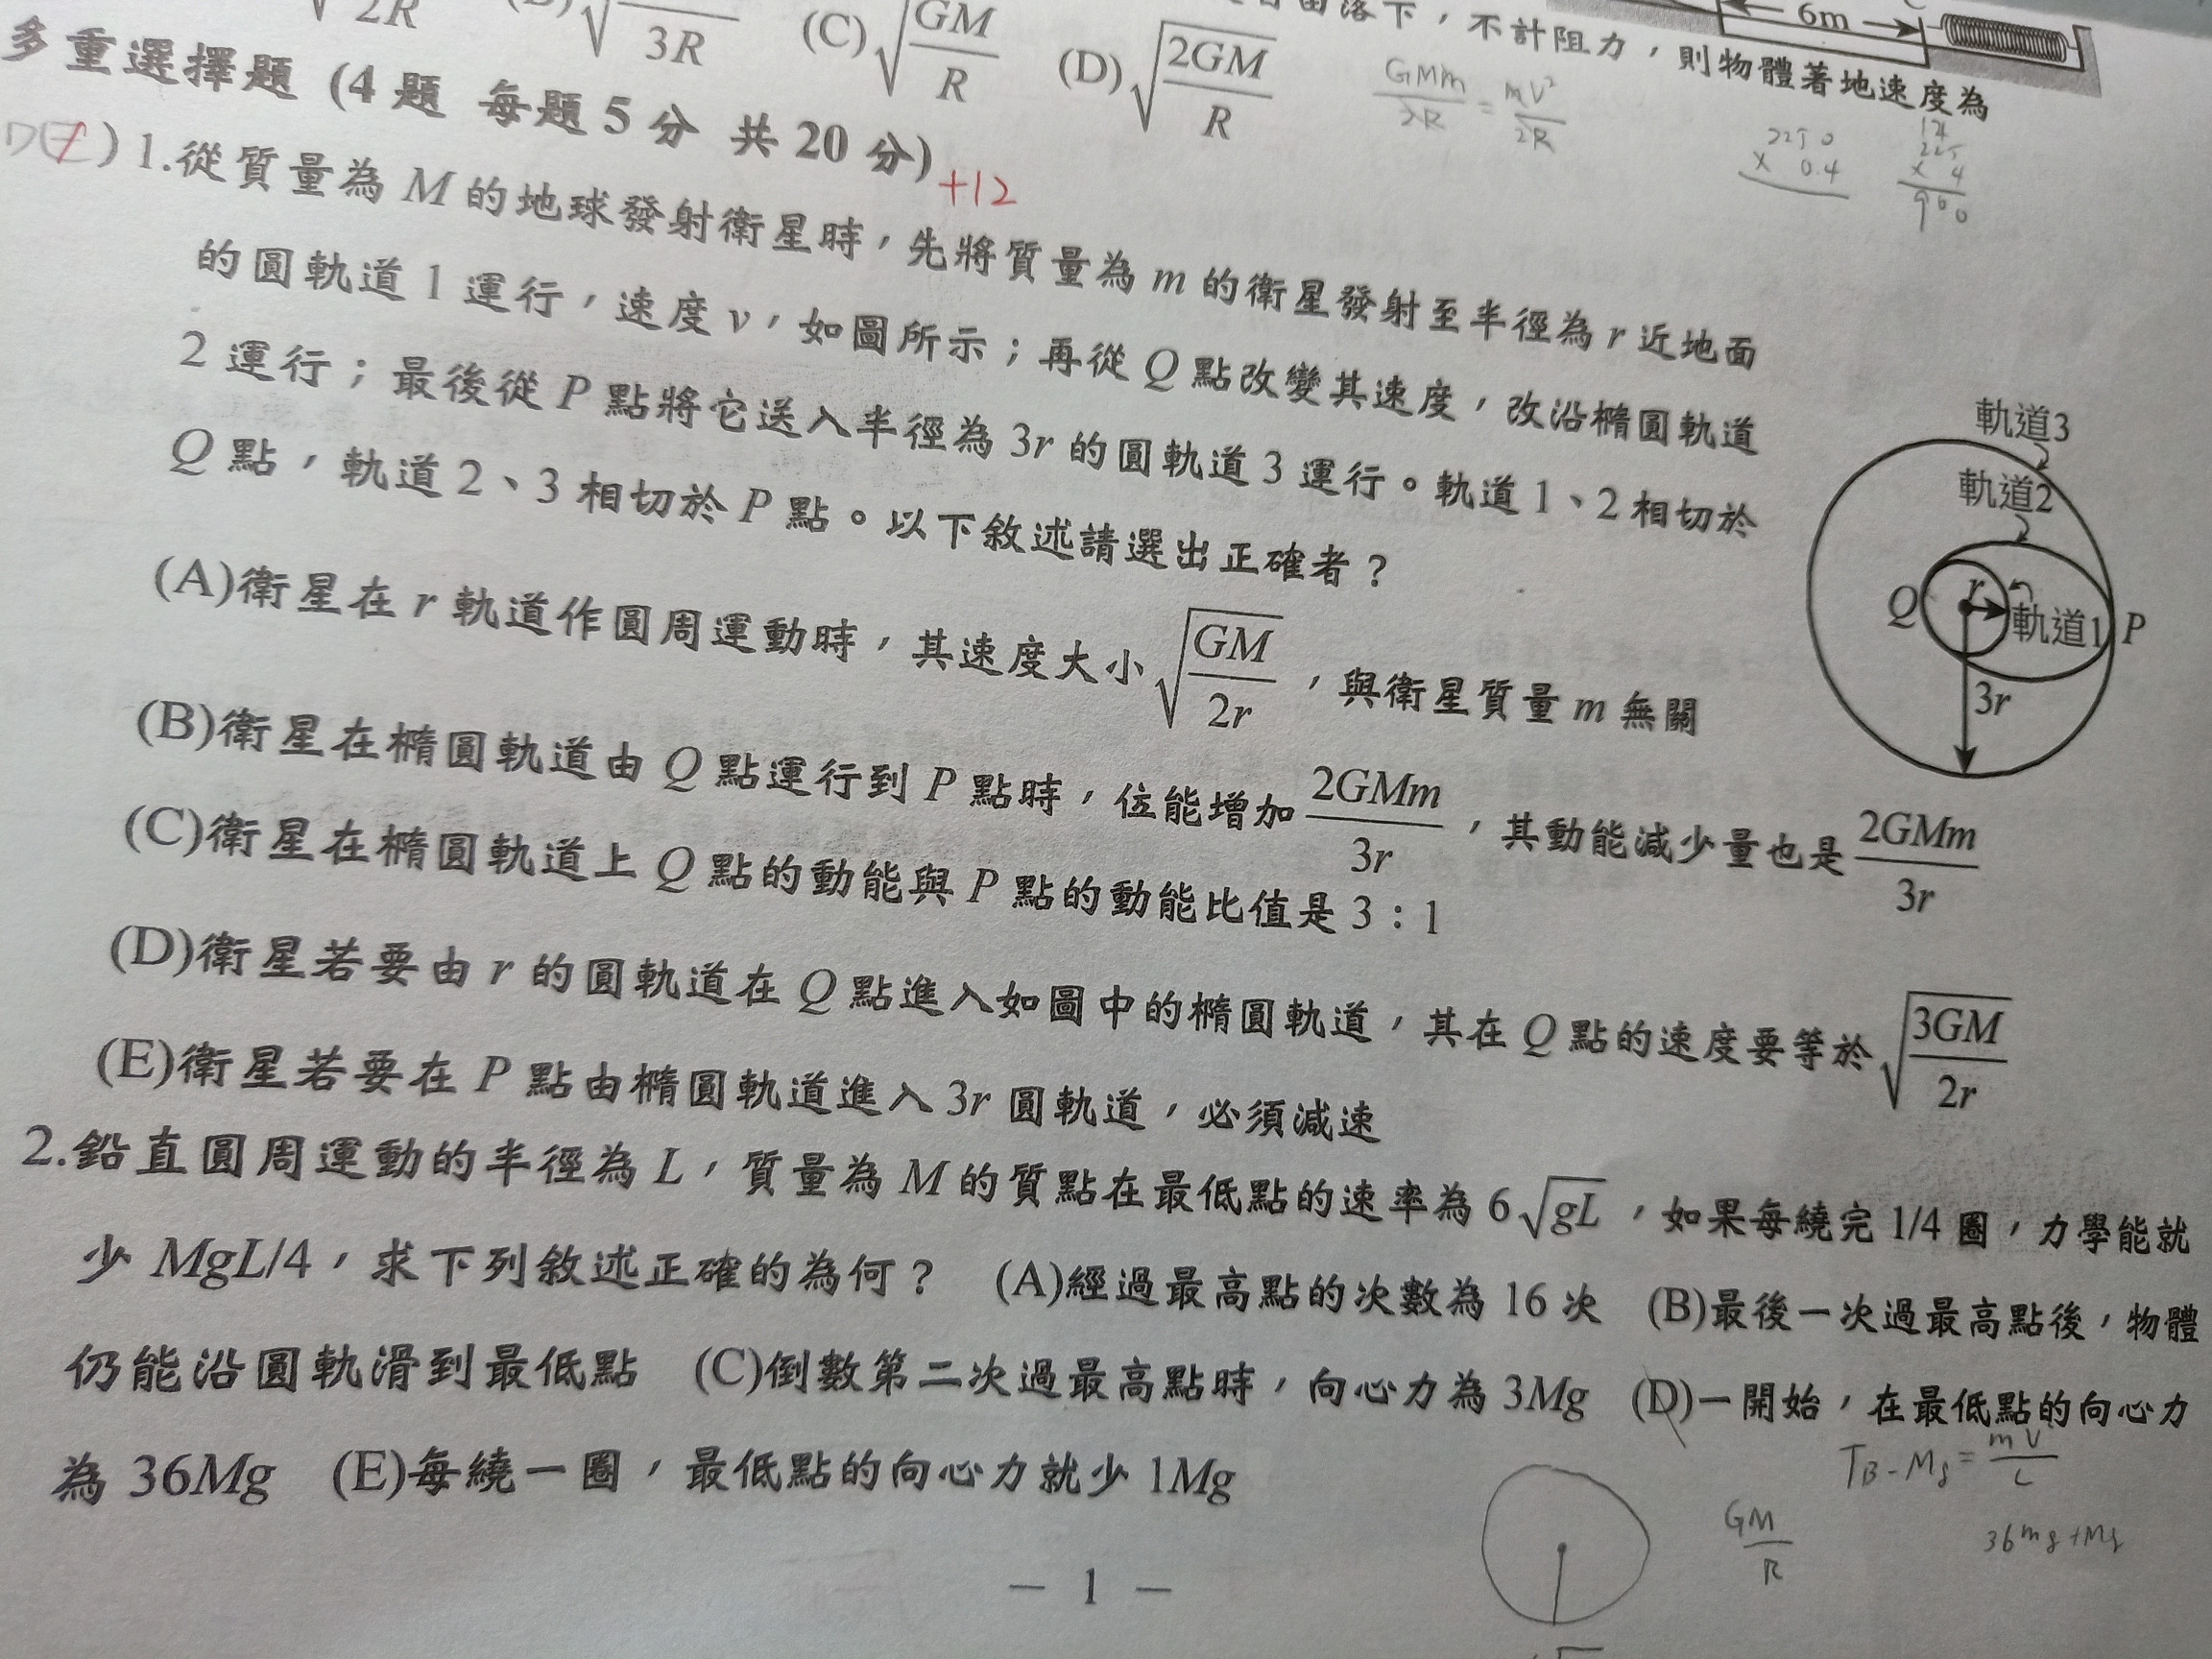 落下，不計阻力，則物體著地速度為
6m
2R
3R
(C)√GM/R
(D)√2GM/R
GMm/2R = mV²/2R
2250
× 0.4
225
× 4
900
多重選擇題 (4 題 每題 5 分 共 20 分)
+12
1.從質量為 M 的地球發射衛星時，先將質量為 m 的衛星發射至半徑為 r 近地面
的圓軌道 1 運行，速度 v，如圖所示；再從 Q 點改變其速度，改沿橢圓軌道
2 運行；最後從 P 點將它送入半徑為 3r 的圓軌道 3 運行。軌道 1、2 相切於
Q 點，軌道 2、3 相切於 P 點。以下敘述請選出正確者？
軌道3
軌道2
Q
r
軌道1
P
3r
(A)衛星在 r 軌道作圓周運動時，其速度大小√GM/2r，與衛星質量 m 無關
(B)衛星在橢圓軌道由 Q 點運行到 P 點時，位能增加 2GMm/3r，其動能減少量也是 2GMm/3r
(C)衛星在橢圓軌道上 Q 點的動能與 P 點的動能比值是 3：1
(D)衛星若要由 r 的圓軌道在 Q 點進入如圖中的橢圓軌道，其在 Q 點的速度要等於√3GM/2r
(E)衛星若要在 P 點由橢圓軌道進入 3r 圓軌道，必須減速
2.鉛直圓周運動的半徑為 L，質量為 M 的質點在最低點的速率為 6√gL，如果每繞完 1/4 圈，力學能就
少 MgL/4，求下列敘述正確的為何？ (A)經過最高點的次數為 16 次 (B)最後一次過最高點後，物體
仍能沿圓軌滑到最低點 (C)倒數第二次過最高點時，向心力為 3Mg (D)一開始，在最低點的向心力
為 36Mg (E)每繞一圈，最低點的向心力就少 1Mg
TB-Mg=mV²/L
GM/R
36mg+Mg
－ 1 －